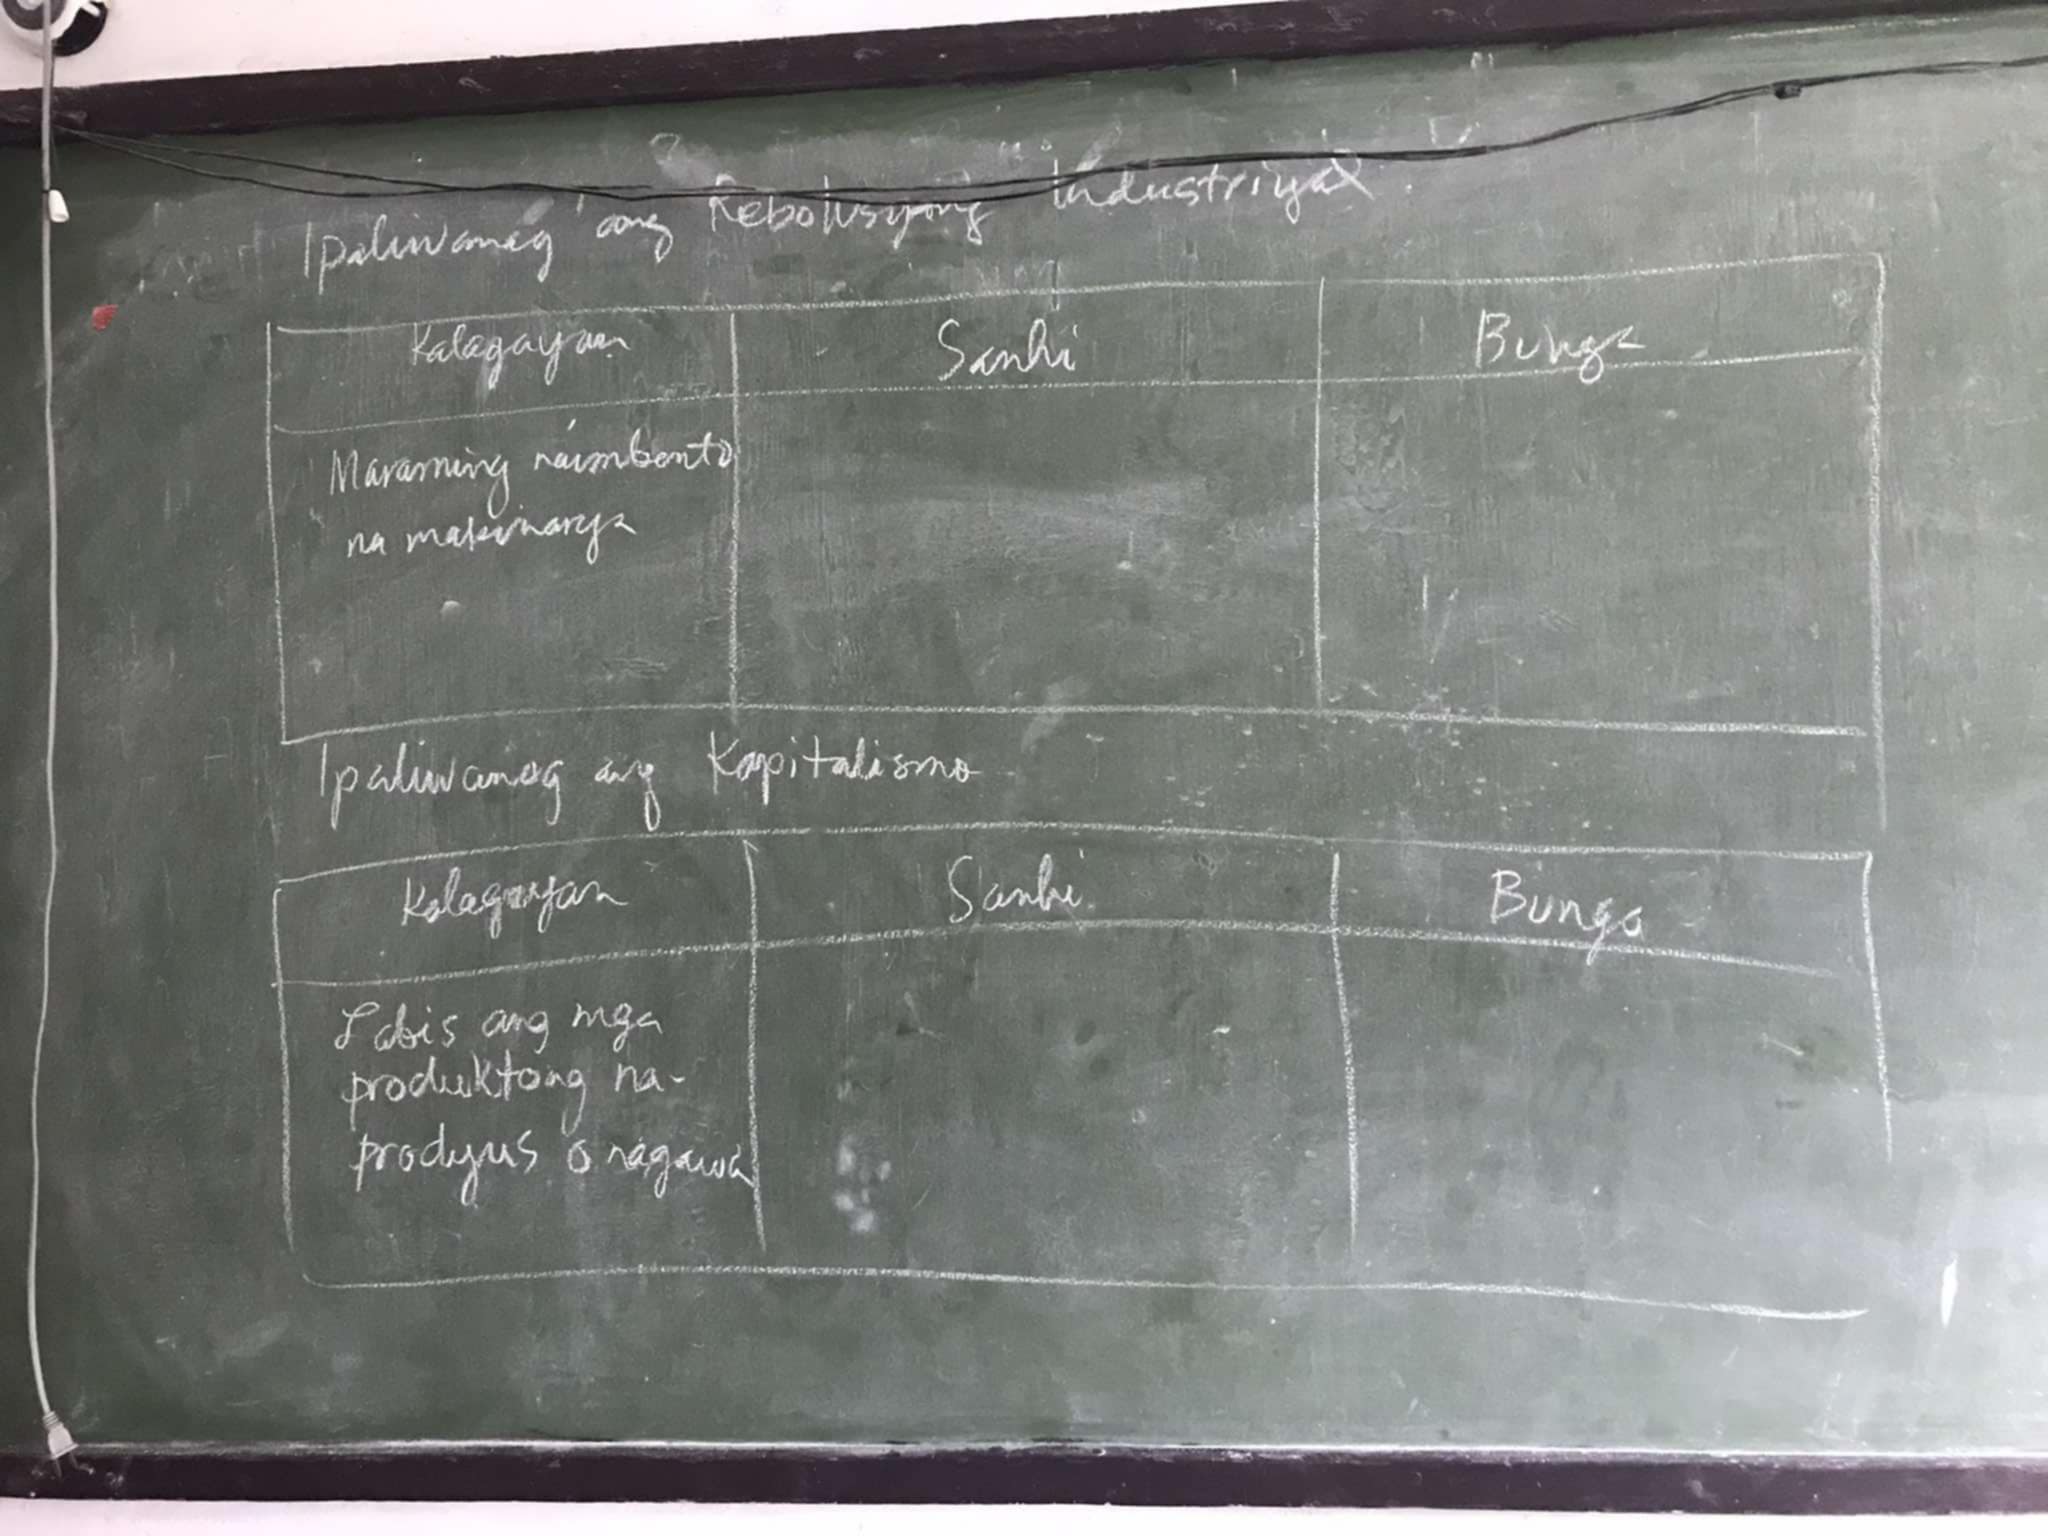 Ipaliwanag ang Rebolusyong Industriyal
Kalagayan Sanhi Bunga
Maraming naimbento
na makinarya
Ipaliwanag ang Kapitalismo
Kalagayan Sanhi Bunga
Labis ang mga
produktong na-
prodyus o nagawa